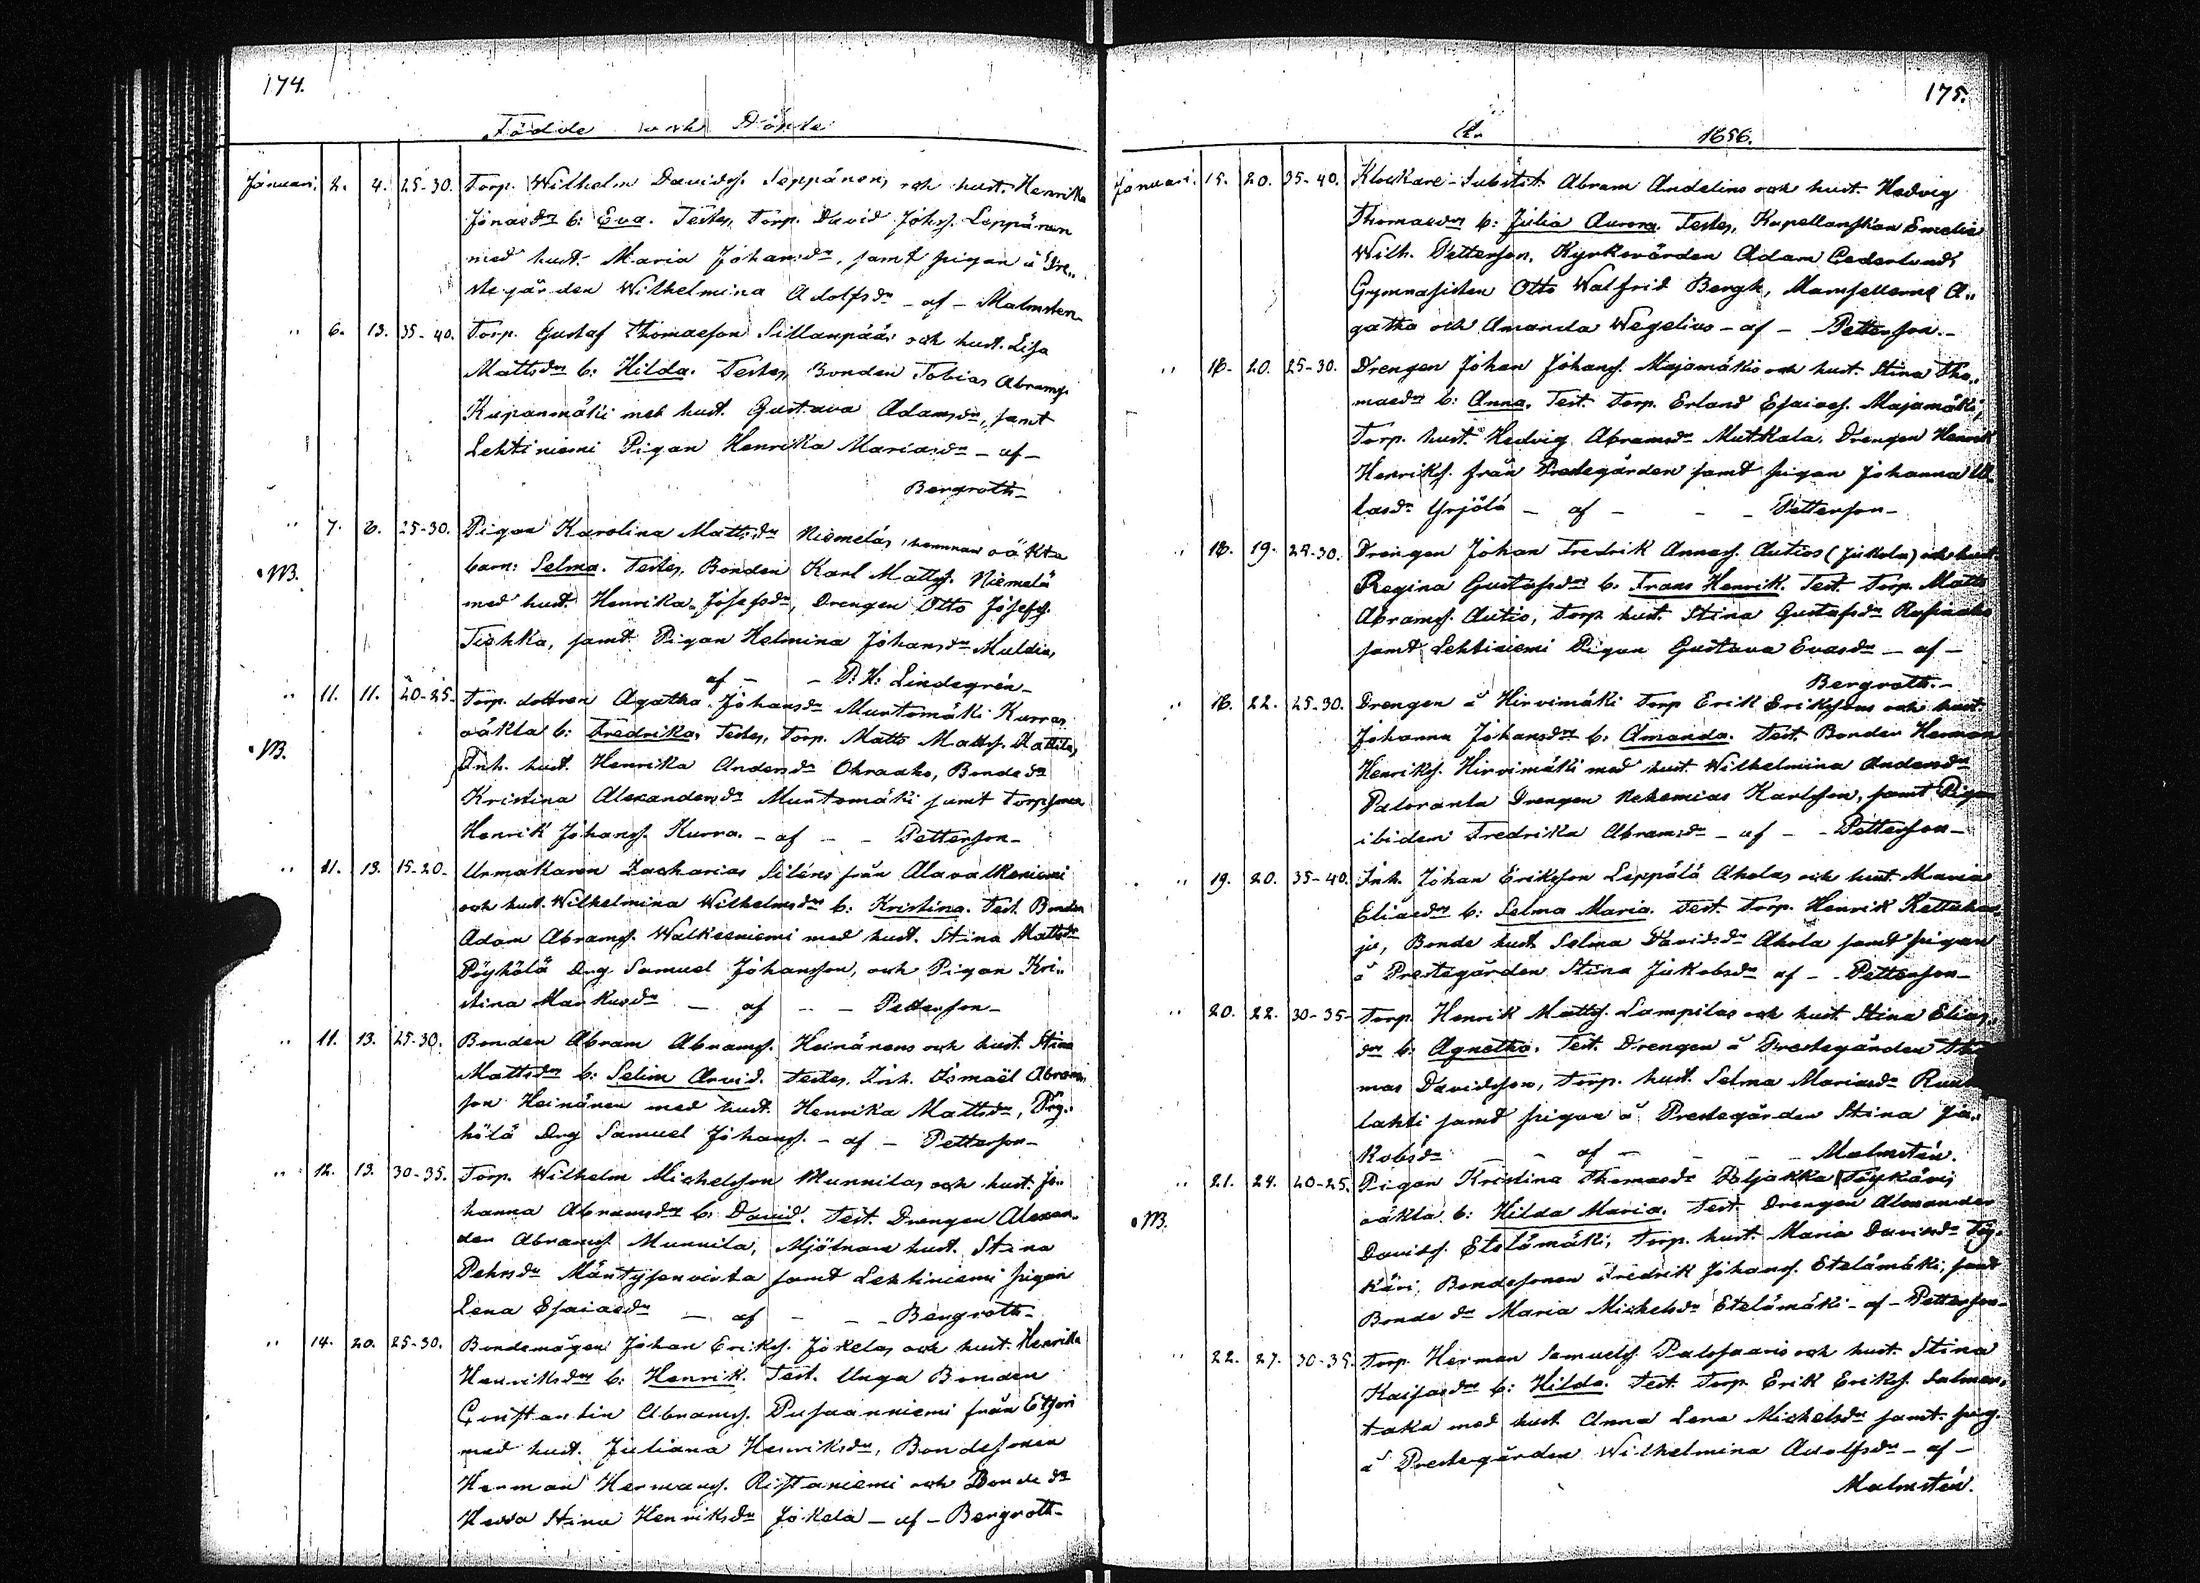 174.
Födde och Döpte
Januari. 2. 4. 25-30. Torp. Wilhelm Davidss. Seppänens och hust. Henrika
Jonasdrs b: Eva. Testes, Torp. David Johss. Leppänen
med hust. Maria Johansdr, samt pigan å Pre„
stegården Wilhelmina Adolfsdr - af - Malmsten
„ 6. 13. 35-40. Torp. Gustaf Thomasson Sillanpääs och hust. Lisa
Mattsdrs b: Hilda. Testes, Bonden Tobias Abramss.
Kupanmäki med hust. Gustava Adamsdr, samt
Lehtiniemi Pigan Henrika Mariasdr - af -
Bergroth -
„ 7. 8. 25-30. Pigan Karolina Mattsdr Niemeläs, hennnas oäkta
N3. barn: Selma. Testes, Bonden Karl Mattss. Niemelä
med hust. Henrika Josefsdr, Drengen Otto Josefss.
samt Pigan Helmina Johansdr
af - - P. H. Lindegrén -
„ 11. 11. 20-25. Torp. dottren Agatha Johansdr Muntomäki Kurras
N3. oäkta b: Fredrika, Testes, Torp. Matts Mattss. Mattila,
Inh. hust. Henrika Andersdr Ohraaho, Bonde dr
Kristina Alexandersdr Muntomäki samt torpsonen
Henrik Johanss. Kurra. - af - - Petterson -
„ 11. 13. 15-20. Urmakaren Zacharias Siléns från Alavalkeniemi
och hust. Wilhelmina Wilhelmsdrs b: Kristina. Test. Bonden
Adam Abramss. Walkeeniemi med hust. Stina Mattsdr
Pöyhölä Drg Samuel Johansson, och Pigan Kri„
stina Markusdr - af - - Petterson -
„ 11. 13. 25-30. Bonden Abram Abramss. Heinänens och hust. Stina
Mattsdrs b: Selim Arvid. Testes. Inh. Ismaël Abram„
son Heinänen med hust. Henrika Mattsdr, Pöy„
hölä Drg Samuel Johanss. - af - Petterson -
„ 12. 13. 30-35. Torp. Wilhelm Michelsson Munnilas och hust. Jo„
hanna Abramsdrs b: David. Test. Drengen Alexan„
der Abramss. Munnila, Mjölnare hust. Stina
Pehrsdr samt Lehtiniemi pigan
Lena Esaiasdr - af - - Bergroth -
„ 14. 20. 25-30. Bondemågen Johan Erikss. Jokelas och hust. Henrika
Henriksdrs b: Henrik. Test. Unga Bonden
Constantin Abramss. Pusaanniemi från Etseri
med hust. Juliana Henriksdr, Bondesonen
Herman Hermanss. Ristaniemi och Bonde dr
Hedda Stina Henriksdr Jokela - af - Bergroth -
175.
År 1856.
Januari. 15. 20. 35-40. Klockare-Substit. Abram Andelins och hust. Hedvig
Thomasdrs b: Julia Aurora. Testes, Kapellanskan Emelie
Wilh. Petterson, Kyrkovärden Adam Cederlund,
Gymnasisten Otto Walfrid Bergh, Mamsellerna A„
gatha och Amanda Wegelius - af - Petterson. -
„ 18. 20. 25-30. Drengen Johan Johanss. Majamäkis och hust. Stina Tho„
masdrs b: Anna. Test. Torp. Erland Esaiass. Majamäki,
Torp. hust. Hedvig Abramsdr Mutkala, Drengen Henrik
Henrikss. från Prestegården samt pigan Johanna Ul„
lasdr Yrjölä - af - - - Petterson -
„ 18. 19. 29-30. Drengen Johan Fredrik Annass. Autios (Jukola) och hust.
Regina Gustafsdrs b: Frans Henrik. Test. Torp. Matts
Abramss. Autio, Torp. hust. Stina Gustafsdr
samt Lehtiniemi Pigan Gustava Evasdr - af -
Bergroth. -
„ 18. 22. 25-30. Drengen å Hirvimäki Torp Erik Erikssons och hust.
Johanna Johansdrs b: Amanda. Test. Bonden Herman
Henrikss. Hirvimäki med hust. Wilhelmina Andersdr
Paloranta Drengen Nehemias Karlsson, samt Pigan
ibidem Fredrika Abramsdr - af - - Petterson -
„ 19. 20. 35-40. Inh. Johan Eriksson Leppälä Aholas och hust. Maria
Eliasdrs b: Selma Maria. Test. Torp. Henrik Kettuhar„
ju, Bonde hust. Selma Davidsdr Ahola samt pigan
å Prestegården Stina Jakobsdr af - Petterson -
„ 20. 22. 30-35. Torp. Henrik Mattss. Lampilas och hust. Stina Elias„
drs b: Agnetha. Test. Drengen å Prestegården Tho
mas Davidsson, Torp. hust. Selma Mariasdr
lahti samt pigan å Prestegården Stina Ja„
kobsdr - - af - - Malmstén.
„ 21. 24. 20-25. Pigan Kristina Thomasdr Töykäris
N3. oäkta b: Hilda Maria. Test. Drengen Alexander
Davidss. Etelämäki, Torp. hust. Maria Davidsdr Töy„
käri, Bondesonen Fredrik Johanss. Etelämäki, samt
Bonde dr Maria Michelsdr Etelämäki - af - Petterson -
„ 22. 27. 30-35. Torp. Herman Samuelss. Palosaaris och hust. Stina
Kaisasdrs b: Hilda. Test. Torp. Erik Erikss. Salmen„
taka med hust. Anna Lena Michelsdr samt pig.
å Prestegården Wilhelmina Adolfsdr - af -
Malmstén.